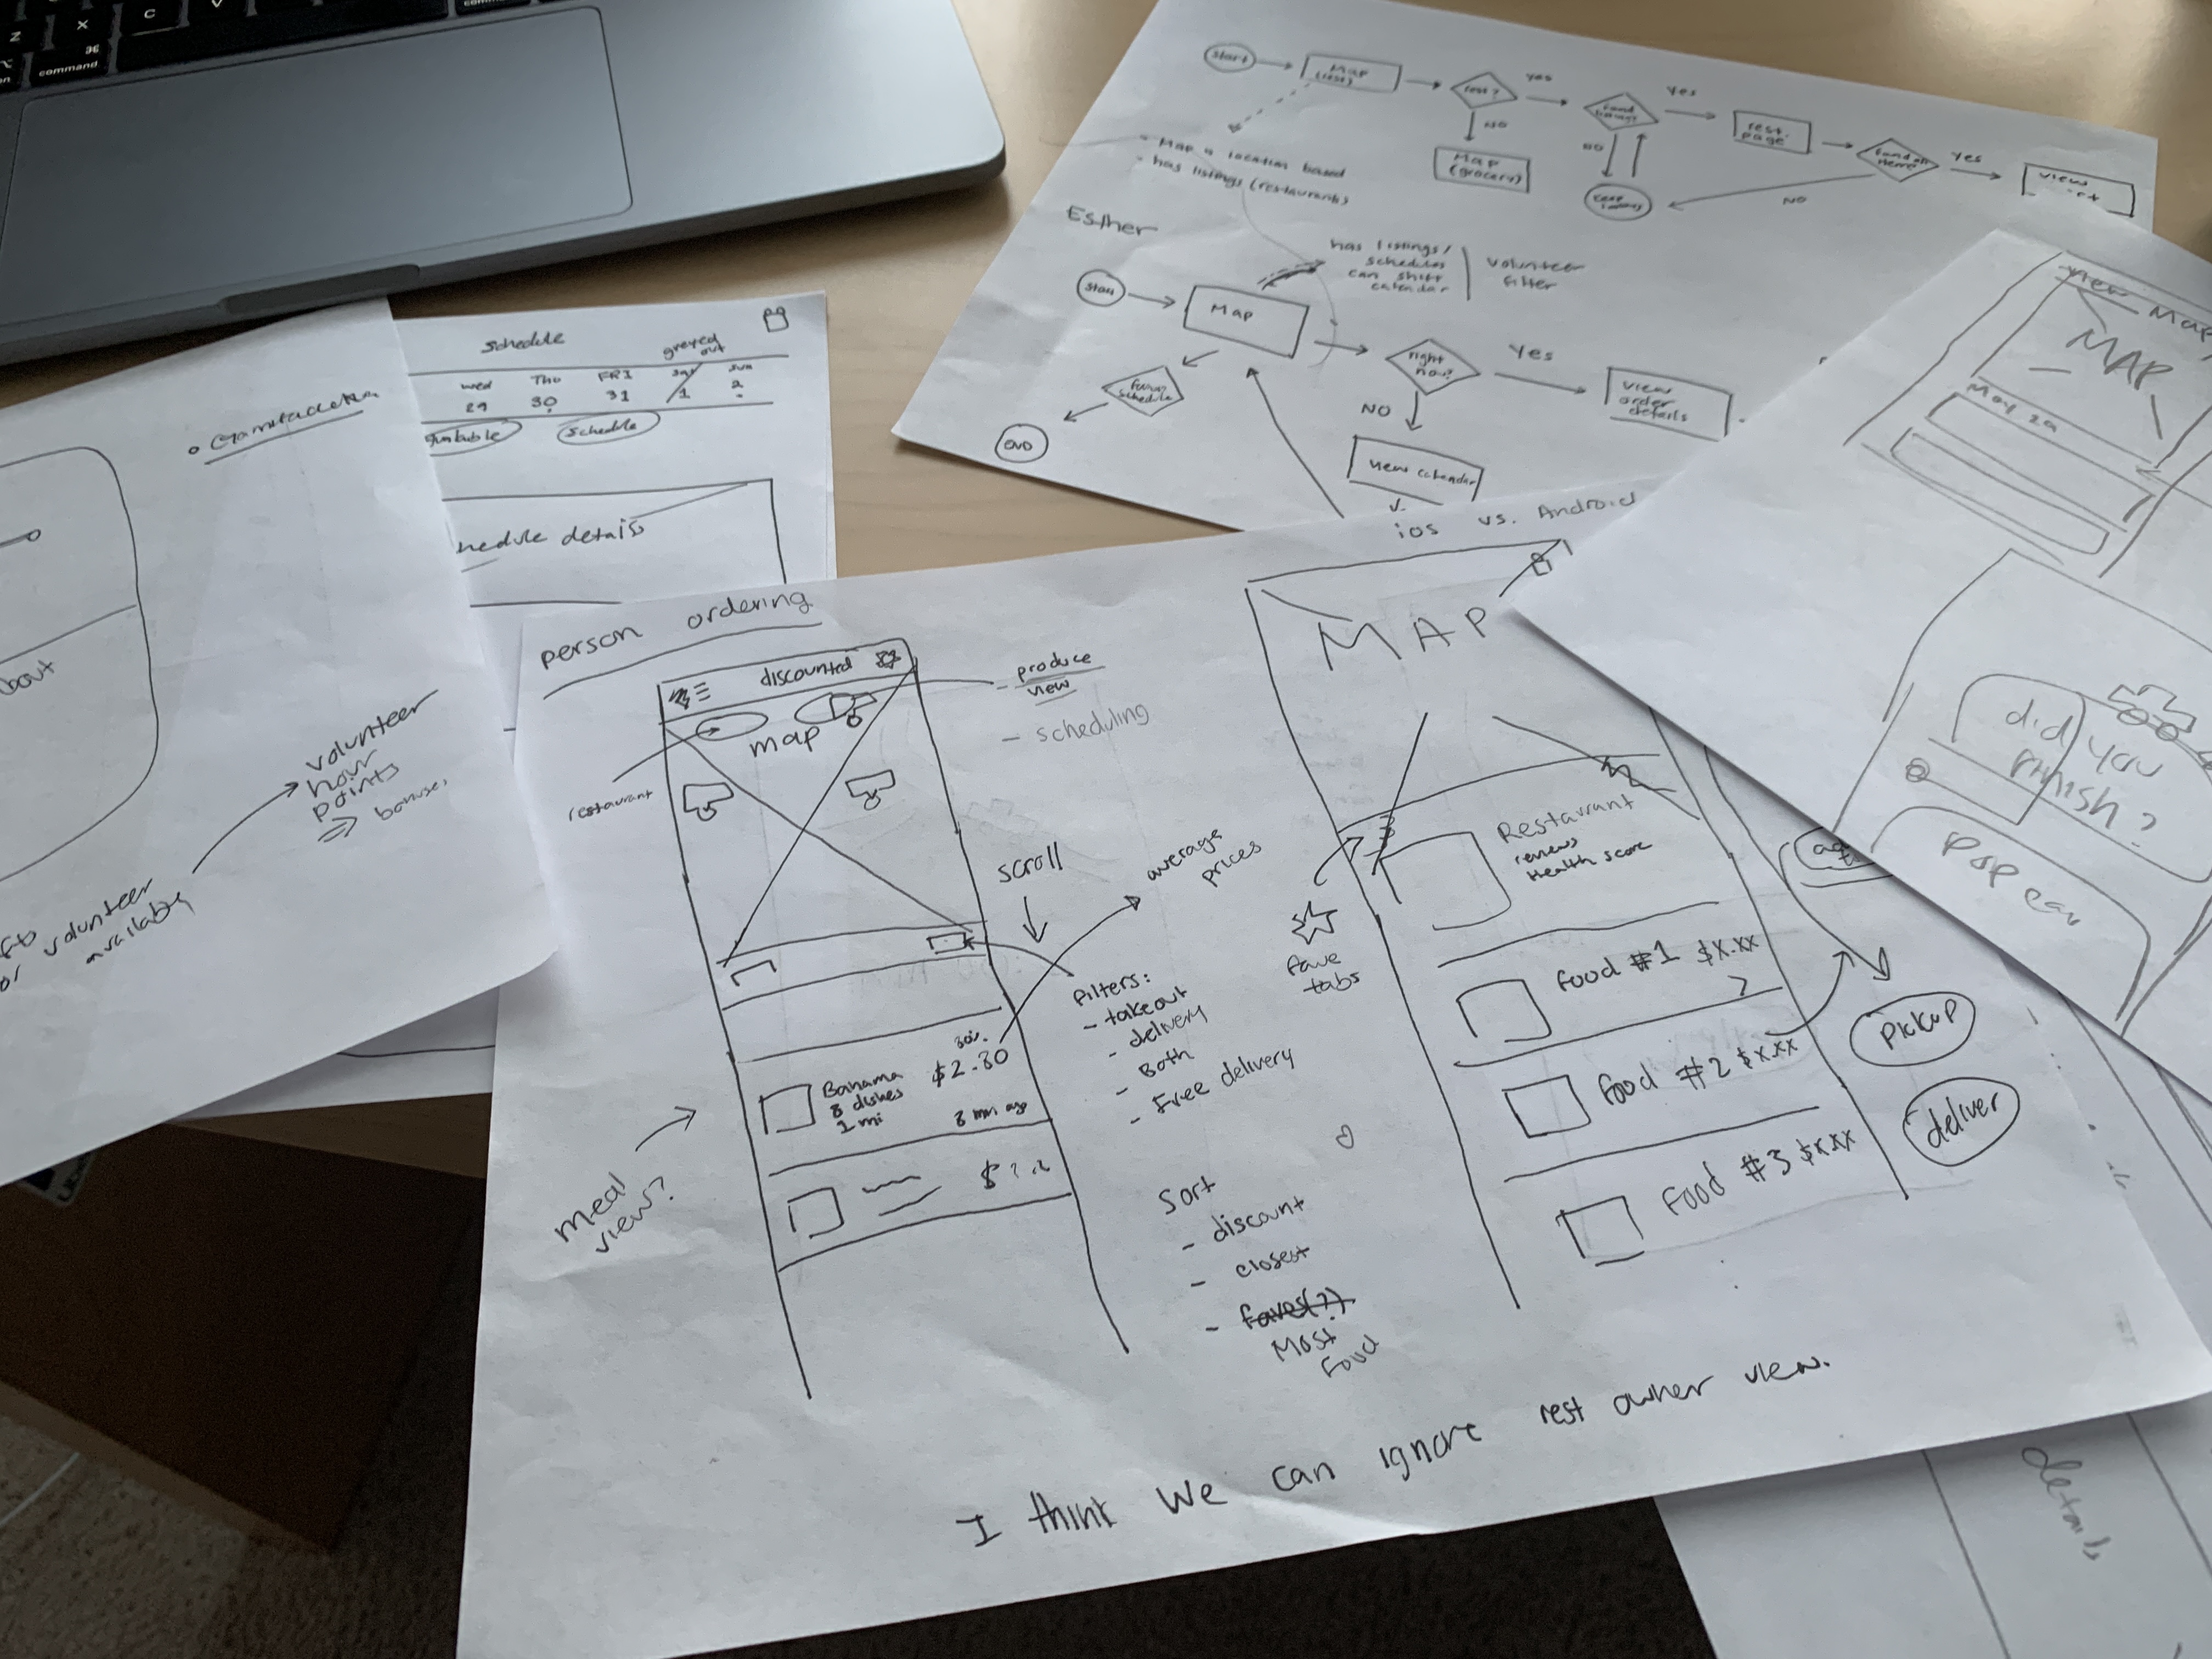 Z
X
C
V
⌘
command
Start
Map
(rest)
rest?
yes
NO
Map
(grocery)
yes
NO
rest.
page
yes
NO
view
- Map is location based
- has listings (restaurants)
Esther
has listings/
schedules
can shift
calendar
volunteer
filter
Start
Map
right
now?
Yes
view
order
details
NO
view calendar
schedule
END
Schedule
greyed
out
wed
Thu
FRI
sat
sun
29
30
31
1
2
Schedule
hedule details
bout
volunteer
hour
points
volunteer
View Map
MAP
May 29
did you
finish?
pop ear
iOS vs. Android
person ordering
discounted
map
restaurant
- produce
view
- scheduling
scroll
average
prices
Filters:
- takeout
- delivery
- Both
- Free delivery
30%
Bahama
8 dishes
1 mi
$2.30
8 min ago
meal
view?
Sort
- discount
- closest
- faves(?)
Most
Food
MAP
Restaurant
reviews
Health score
fave
tabs
food #1 $x.xx
food #2 $x.xx
food #3 $x.xx
pickup
deliver
I think we can ignore rest owner view.
details